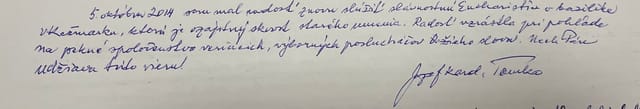 5. októbra 2014 som mal radosť znovu slúžiť slávnostnú Eucharistiu v bazilike
v Kežmarku, ktorá je ozajstný skvost starého umenia. Radosť vzrástla pri pohľade
na pekné spoločenstvo veriacich, výborných poslucháčov Božieho slova. Nech Pán
udržiava túto vieru!
Jozef kard. Tomko